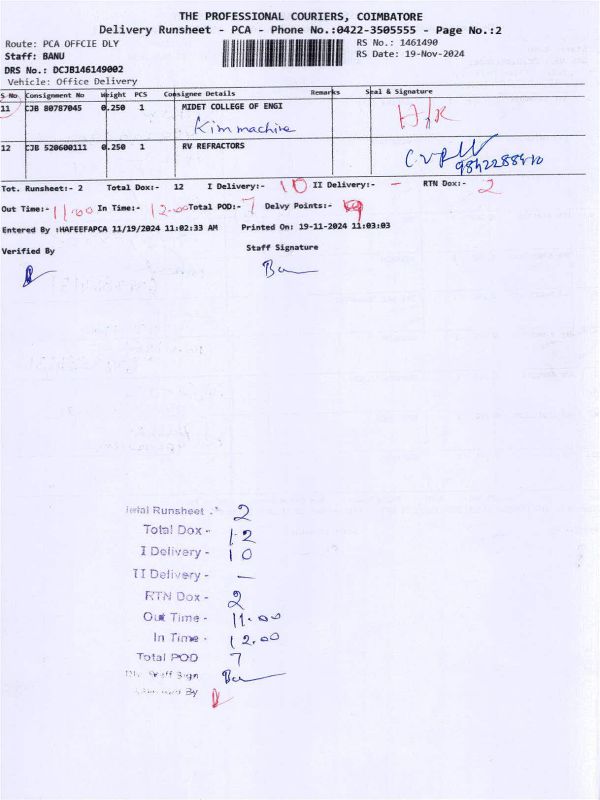 THE PROFESSIONAL COURIERS, COIMBATORE
Delivery Runsheet - PCA - Phone No.:0422-3505555 - Page No.:2
Route: PCA OFFCIE DLY RS No.: 1461490
Staff: BANU RS Date: 19-Nov-2024
DRS No.: DCJB146149002
Vehicle: Office Delivery
S No Consignment No Weight PCS Consignee Details Remarks Seal & Signature
11 CJB 80787045 0.250 1 MIDET COLLEGE OF ENGI
Kim machine
12 CJB 520600111 0.250 1 RV REFRACTORS
Tot. Runsheet:- 2 Total Dox:- 12 I Delivery:- 10 II Delivery:- - RTN Dox:- 2
Out Time:- 11.00 In Time:- 12.00 Total POD:- 7 Delvy Points:-
Entered By :HAFEEFAPCA 11/19/2024 11:02:33 AM Printed On: 19-11-2024 11:03:03
Verified By Staff Signature
Runsheet 2
Total Dox - 12
I Delivery - 10
II Delivery - -
RTN Dox - 2
Out Time - 11.00
In Time - 12.00
Total POD 7
Staff Sign
By